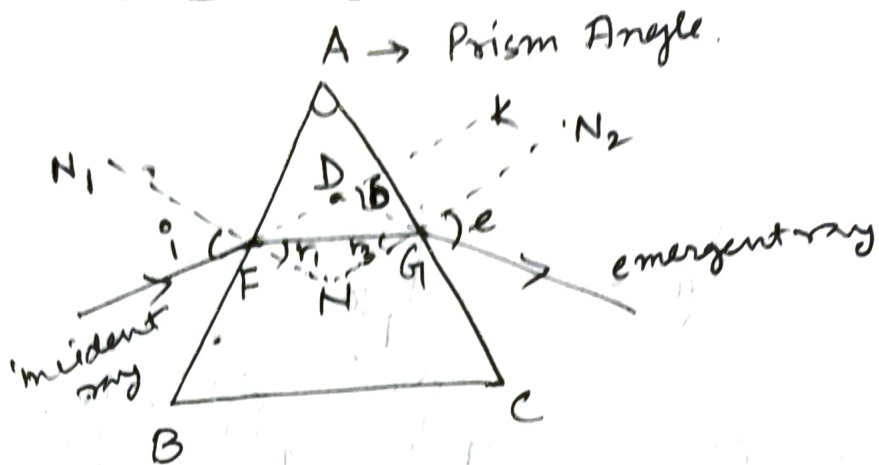 A → Prism Angle.
K
N2
N1
D
δ
i
e
r1
r2
F
G
N
emergent ray
incident
ray
B
C